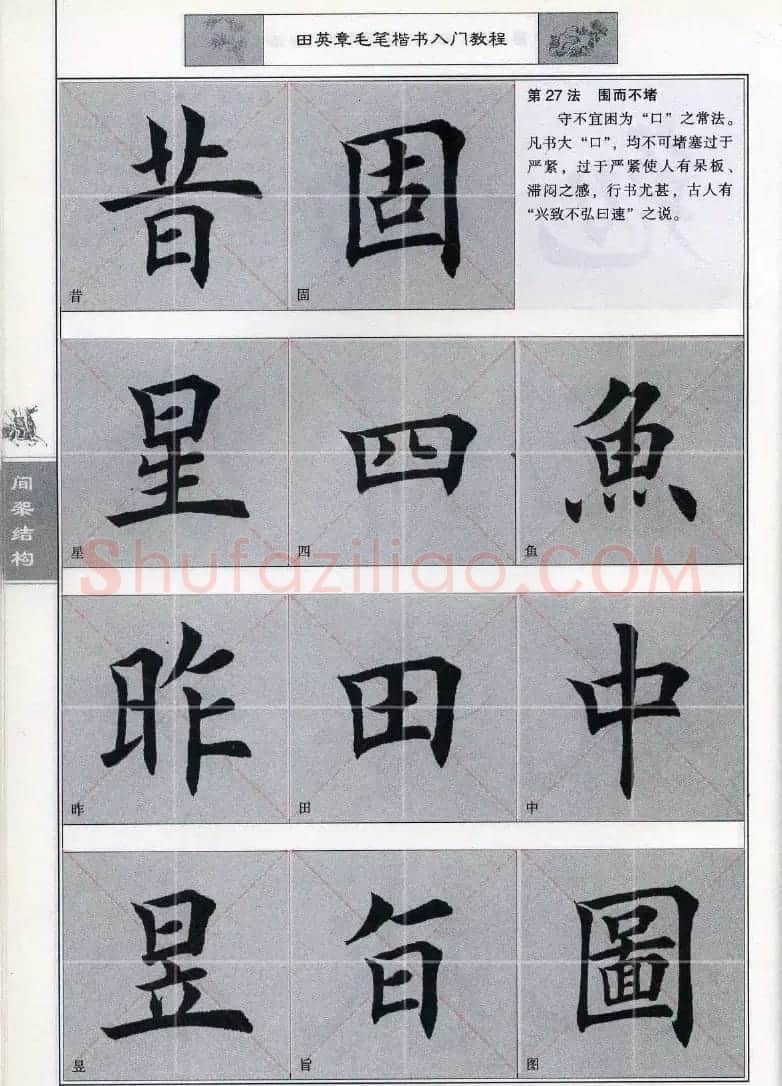 田英章毛笔楷书入门教程
第27法 围而不堵
守不宜困为“口”之常法。
凡书大“口”，均不可堵塞过于
严紧，过于严紧使人有呆板、
滞闷之感，行书尤甚，古人有
“兴致不弘曰速”之说。
昔 固
昔 固
星 四 魚
星 四 鱼
昨 田 中
昨 田 中
昱 旨 圖
昱 旨 图
间架结构
Shufaziliao.COM